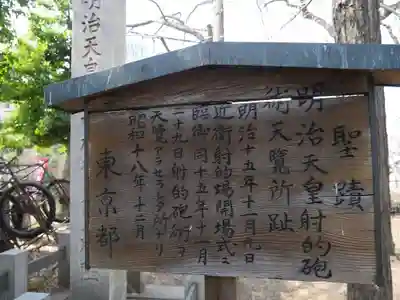 聖蹟
明治天皇射的砲
術天覧所趾
明治十五年十一月元日
近衛射的場開場式ニ
臨御同十五年十一月
二十九日射的砲術ヲ
天覧アラセラレタ所ナリ
昭和十八年十二月
東京都
明治天皇